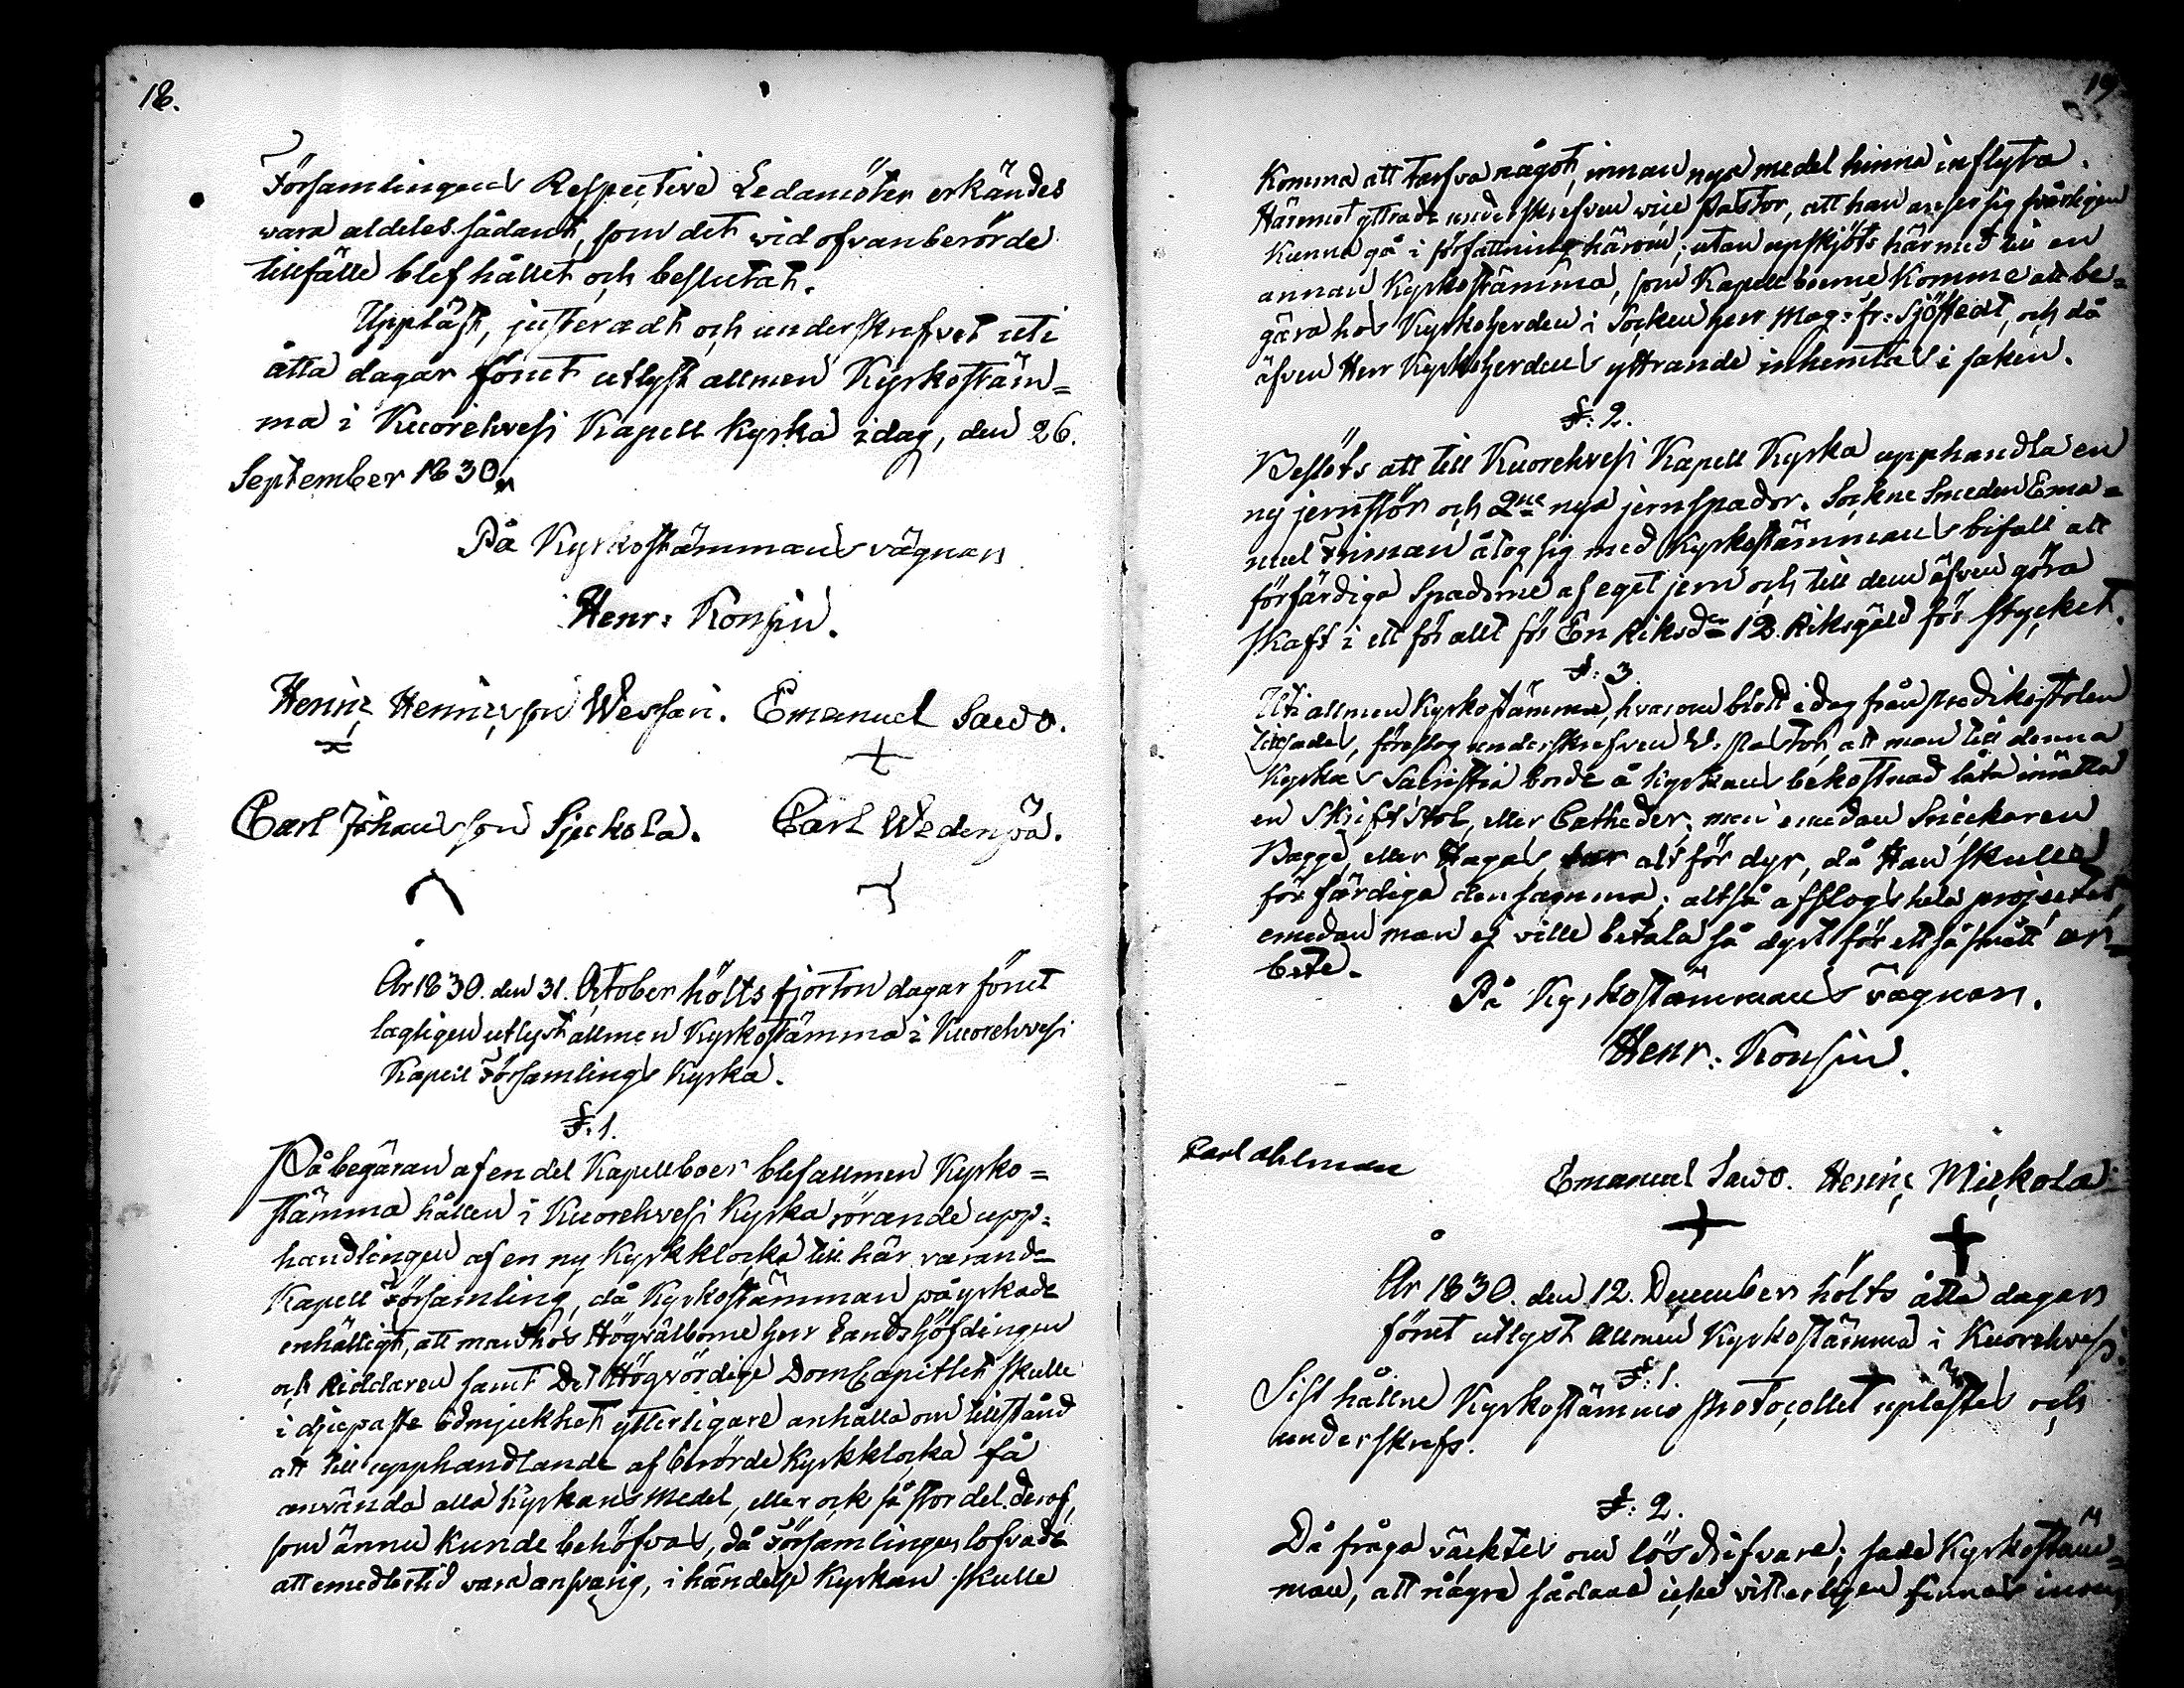 18.
Församlingens Respective Ledamöter erkändes
vara aldeles sådant, som det vid ofvanberörde
tillfälle blef hållet och beslutat.
Uppläst, justeradt och underskrifvet uti
åtta dagar förut utlyst allmen Kyrkostäm=
ma i Kuorehvesi Kapell Kyrka idag, den 26.
September 1830.
På Kyrkostämmans vägnar
Henr: Konsin.
Henric Henricsson Wessari. Emanuel Sawo.
Carl Johansson Sjeckola. Carl Wedenpä.
År 1830. den 31. October hölts fjorton dagar förut
lagligen utlyst allmen Kyrkostämma i Kuorehvesi
Kapell Församlings Kyrka.
§: 1.
På begäran af en del Kapellboer blef allmen Kyrko=
stämma hållen i Kuorehvesi Kyrka rörande upp=
handlingen af en ny Kyrkklocka till här varande
Kapell Församling, då Kyrkostämman påyrkade
enhälligt, att man hos Högvälborne herr Landshöfdingen
och Riddaren samt Det Högvördige DomCapitlet skulle
i djupaste ödmjukhet ytterligare anhålla om tillstånd
att till upphandlande af berörde Kyrkklocka få
använda alla Kyrkans Medel, eller ock så stor del deraf,
som ännu kunde behöfvas, då Församlingen lofvade
att emedlertid vara ansvarig, i händelse Kyrkan skulle
19
Komma att tarfva något, innan nya medel hinna inflyta.
Häremot yttrade underskrefven vice Pastor, att han anser sig svårligen
kunna gå i författning härom; utan upskjöts härmed till en
annan Kyrkostämma, som Kapellboerne Komme att be=
gära hos Kyrkoherden i Socken herr Mag: fr: Sjöstedt, och då
äfven Herr Kyrkoherdens yttrande inhemtas i saken.
§: 2.
Beslöts att till Kuorehvesi Kapell Kyrka upphandla en
ny jernstör och 2ne nya jernspador. Sockne Smeden Ema=
nuel Friman åtog sig med Kyrkostämmans bifall att
förfärdiga Spadorne af eget jern och till dem äfven göra
skaft i ett för allt för En Riksdr 12 Riksgäld för stycket.
§: 3.
Uti allmen Kyrkostämma, hvarom blott idag från predikstolen
lystes, föreslog underskrefven V. Pastor, att man till denna
Kyrkas Sacristia borde å Kyrkans bekostnad låta inrätta
en Skriftstol, eller Catheder; men emedan Snickaren
Bagge, eller Haga, var alt för dyr, då Han skulle
för färdiga densamma; altså afslogs hela projectet,
emedan man ej ville betala så dyrt för ett så smått ar=
bete.
På Kyrkostämmans vägnar.
Henr: Konsin.
Carl Ahlman
Emanuel Sawo. Henric Mickola
År 1830. den 12. December hölts åtta dagar
förut utlyst Allmen Kyrkostämma i Kuorehvesi.
§: 1.
Sist hållne Kyrkostämmo Protocollet uplästes och
underskrefs.
§: 2.
Då fråga väcktes om lösdrifvare; sade Kyrkostäm=
man, att några sådane icke vitterligen finnas inom